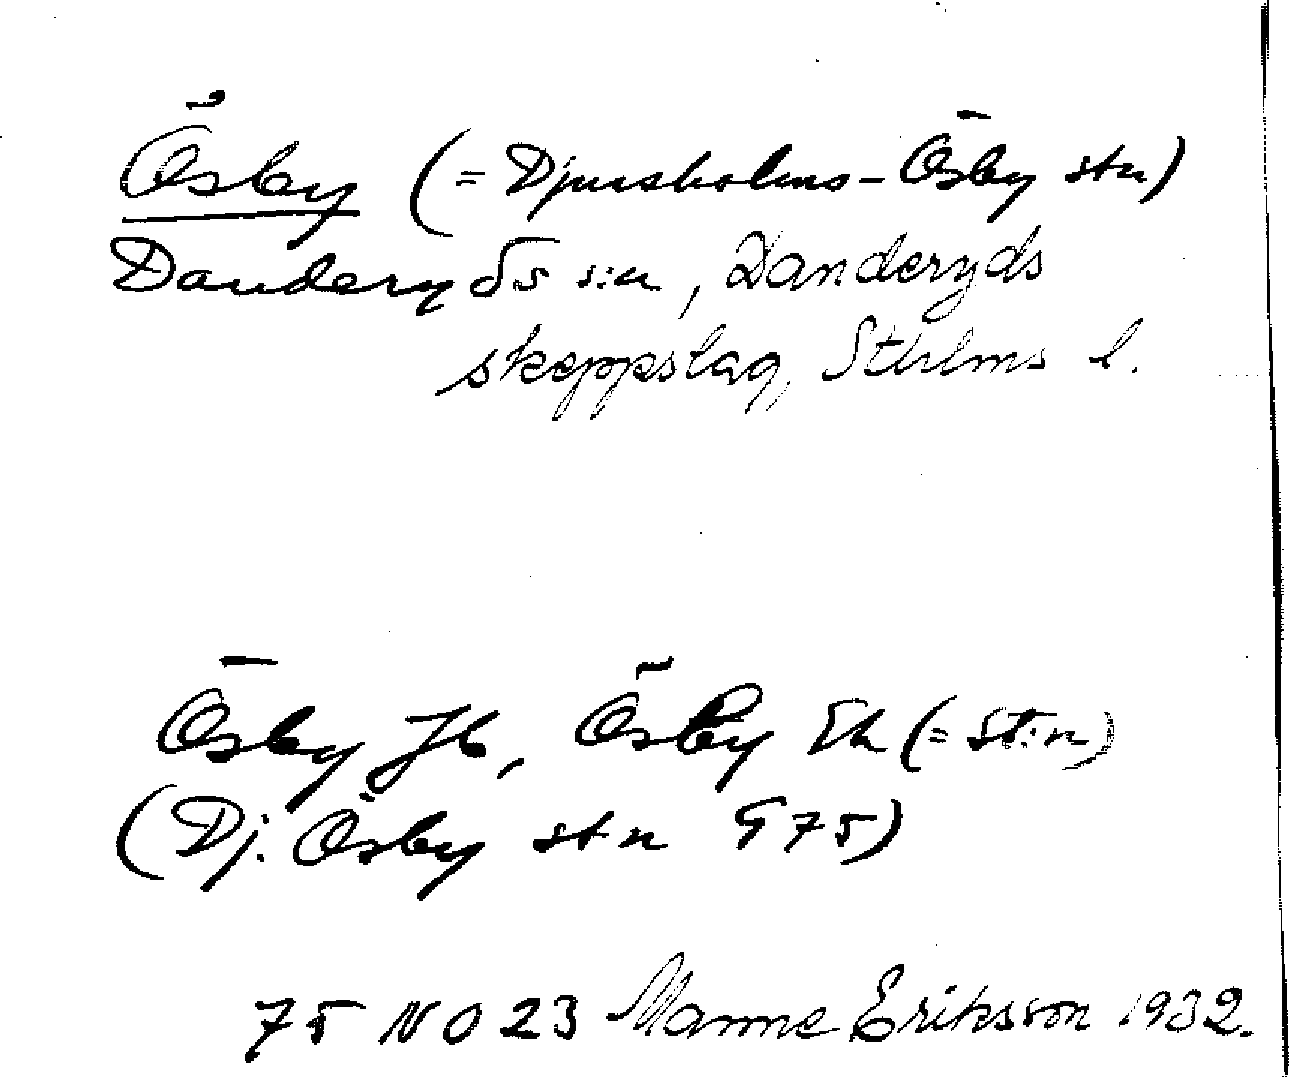 Ösby (= Djursholms-Ösby stn)
Danderyds s:n, Danderyds
skeppslag, Sthlms l.
Ösby Jb, Ösby Ek (= st:n)
(Dj. Ösby stn G 75)
75 NO 23 Manne Eriksson 1932.